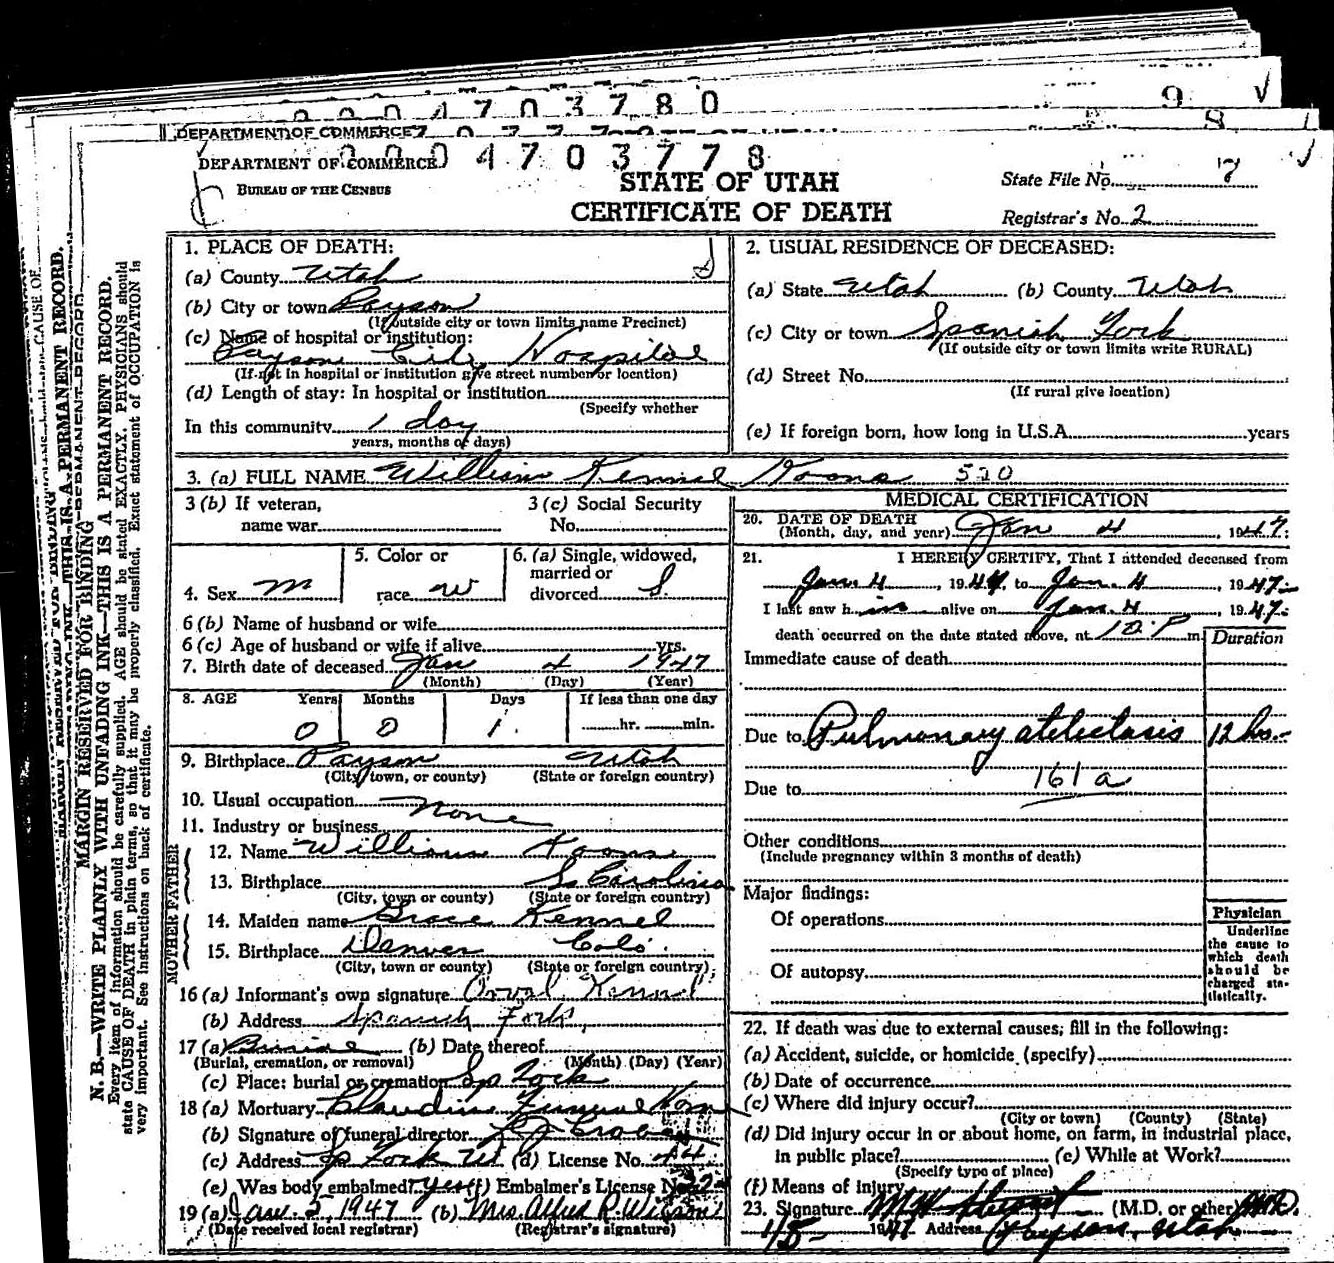 0 0 0 4 7 0 3 7 8 0
9
8
DEPARTMENT OF COMMERCE
0 0 0 4 7 0 3 7 7 8
DEPARTMENT OF COMMERCE
BUREAU OF THE CENSUS
STATE OF UTAH
CERTIFICATE OF DEATH
State File No. 7
Registrar's No. 2
MARGIN RESERVED FOR BINDING
N. B.—WRITE PLAINLY WITH UNFADING INK—THIS IS A PERMANENT RECORD.
Every item of information should be carefully supplied. AGE should be stated EXACTLY. PHYSICIANS should
state CAUSE OF DEATH in plain terms, so that it may be properly classified. Exact statement of OCCUPATION is
very important. See instructions on back of certificate.
1. PLACE OF DEATH:
(a) County Utah
(b) City or town Payson
(If outside city or town limits name Precinct)
(c) Name of hospital or institution:
Payson City Hospital
(If not in hospital or institution give street number or location)
(d) Length of stay: In hospital or institution
(Specify whether
In this community 1 day
years, months or days)
2. USUAL RESIDENCE OF DECEASED:
(a) State Utah (b) County Utah
(c) City or town Spanish Fork
(If outside city or town limits write RURAL)
(d) Street No.
(If rural give location)
(e) If foreign born, how long in U.S.A. years
3. (a) FULL NAME William Kennel Koons 520
3 (b) If veteran,
name war
3 (c) Social Security
No.
4. Sex M
5. Color or
race W
6. (a) Single, widowed,
married or
divorced S.
6 (b) Name of husband or wife
6 (c) Age of husband or wife if alive yrs.
7. Birth date of deceased Jan 4 1947
(Month) (Day) (Year)
8. AGE Years Months Days If less than one day
0 0 1 hr. min.
9. Birthplace Payson Utah
(City, town, or county) (State or foreign country)
10. Usual occupation None
11. Industry or business
FATHER
12. Name William Koons
13. Birthplace S. Carolina
(City, town or county) (State or foreign country)
MOTHER
14. Maiden name Grace Kennel
15. Birthplace Denver Colo.
(City, town or county) (State or foreign country)
16 (a) Informant's own signature Orval Kennel
(b) Address Spanish Fork,
17 (a) Burial (b) Date thereof
(Burial, cremation, or removal) (Month) (Day) (Year)
(c) Place: burial or cremation Sp Fork
18 (a) Mortuary Claudin Funeral Home
(b) Signature of funeral director
(c) Address Sp Fork Ut (d) License No. 44
(e) Was body embalmed? yes (f) Embalmer's License No.
19 (a) Jan. 5, 1947 (b) Mrs. Alfred R. Wilson
(Date received local registrar) (Registrar's signature)
MEDICAL CERTIFICATION
20. DATE OF DEATH
(Month, day, and year) Jan 4, 1947.
21. I HEREBY CERTIFY, That I attended deceased from
Jan 4, 1947, to Jan. 4, 1947.
I last saw him alive on Jan. 4, 1947.
death occurred on the date stated above, at 10 P m. Duration
Immediate cause of death
Due to Pulmonary atelectasis 12 hrs.
Due to 161a
Other conditions
(Include pregnancy within 3 months of death)
Major findings:
Of operations
Of autopsy
Physician
Underline
the cause to
which death
should be
charged sta-
tistically.
22. If death was due to external causes; fill in the following:
(a) Accident, suicide, or homicide (specify)
(b) Date of occurrence
(c) Where did injury occur?
(City or town) (County) (State)
(d) Did injury occur in or about home, on farm, in industrial place,
in public place? (e) While at Work?
(Specify type of place)
(f) Means of Injury
23. Signature M W Stewart (M.D. or other) M.D.
1/5 1947 Address Payson, Utah